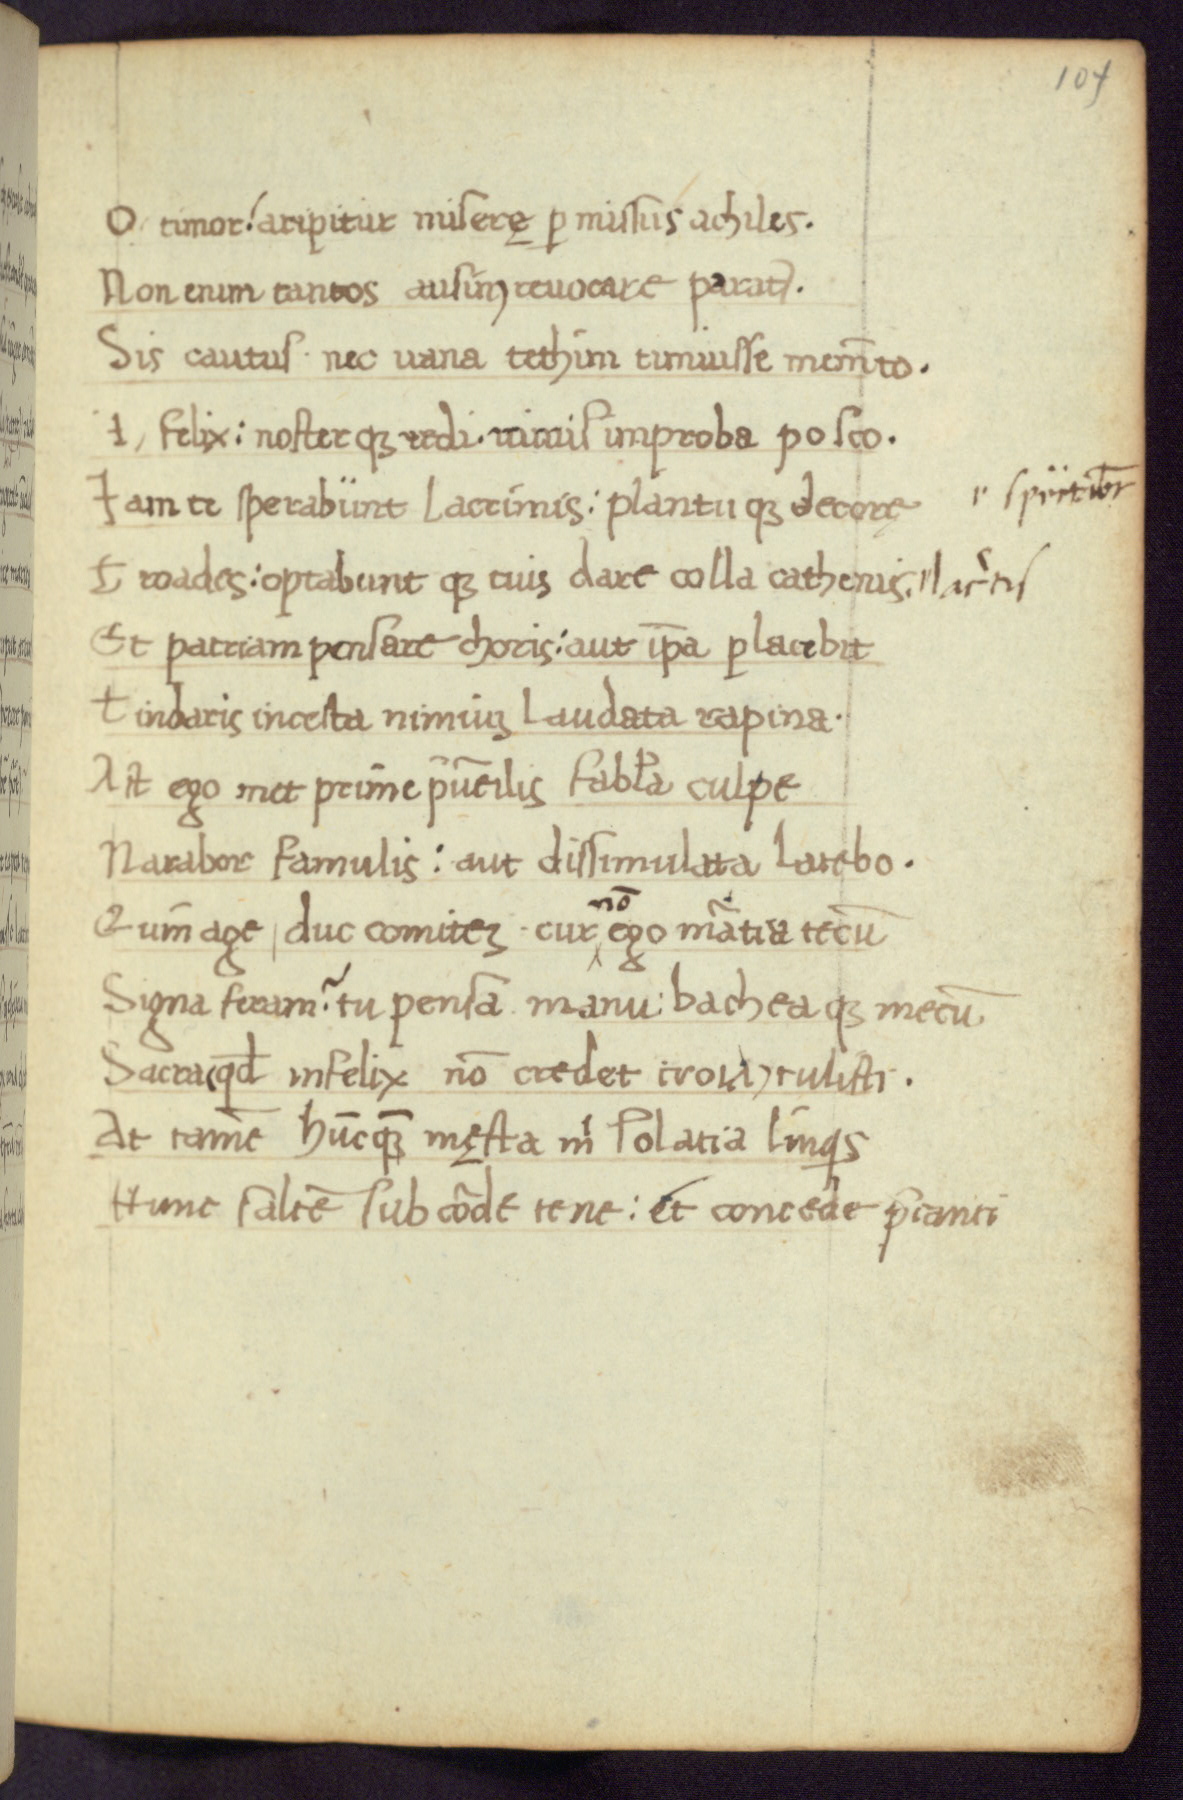 107
O timor! aripitur miserę ꝑ missus achiles.
Non enim tantos ausim reuocare parat⁊.
Sis cautus nec uana tethim timuisse mem̄to.
I, felix: nosterqꝫ redi. nimis improba posco.
Iam te sperabunt Lacrimis: planctuqꝫ decorę
Troades: optabuntqꝫ tuis dare colla cathenis.
Et patriam pensare choris: aut ip̄a placebit
Tindaris incesta nimiuꝫ Laudata rapina.
Ast ego met prime pu̅erilis fabl̄a culpe
Narabor famulis: aut dissimulata Latebo.
Quin̄ age, duc comiteꝫ. cur nō ego m̄atia tecū
Signa feram? tu pensa manu: bacheaqꝫ mecū
Sacra qđ infelix nō credet troia, tulisti.
At tam̄e hūcqꝫ męsta m̄ solatia linquis
Hunc saltē sub cor̄de tene: et concede p̄canti